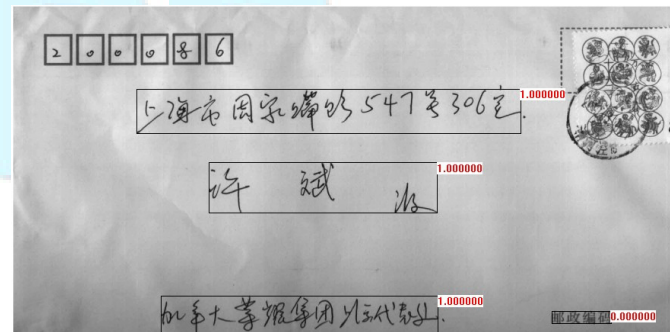 200086
上海市周家嘴路547号306室.
1.000000
许 斌 收
1.000000
加拿大華耀集团 上海代表处.
1.000000
邮政编码 0.000000